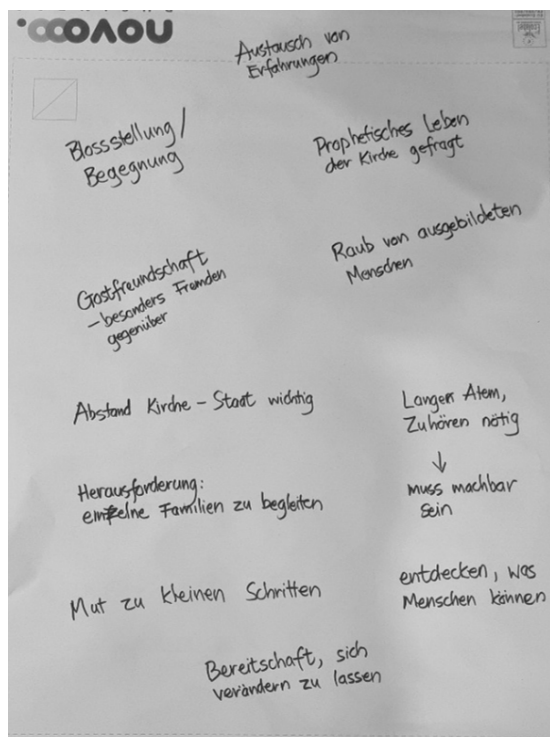 novooo.
Austausch von
Erfahrungen
Blossstellung/
Begegnung
Prophetisches Leben
der Kirche gefragt
Gastfreundschaft
– besonders Fremden
gegenüber
Raub von ausgebildeten
Menschen
Abstand Kirche – Staat wichtig
Langer Atem,
Zuhören nötig
↓
muss machbar
sein
Herausforderung:
einzelne Familien zu begleiten
Mut zu kleinen Schritten
entdecken, was
Menschen können
Bereitschaft, sich
verändern zu lassen